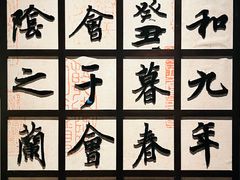 和九年
癸丑暮春
會于會
陰之蘭